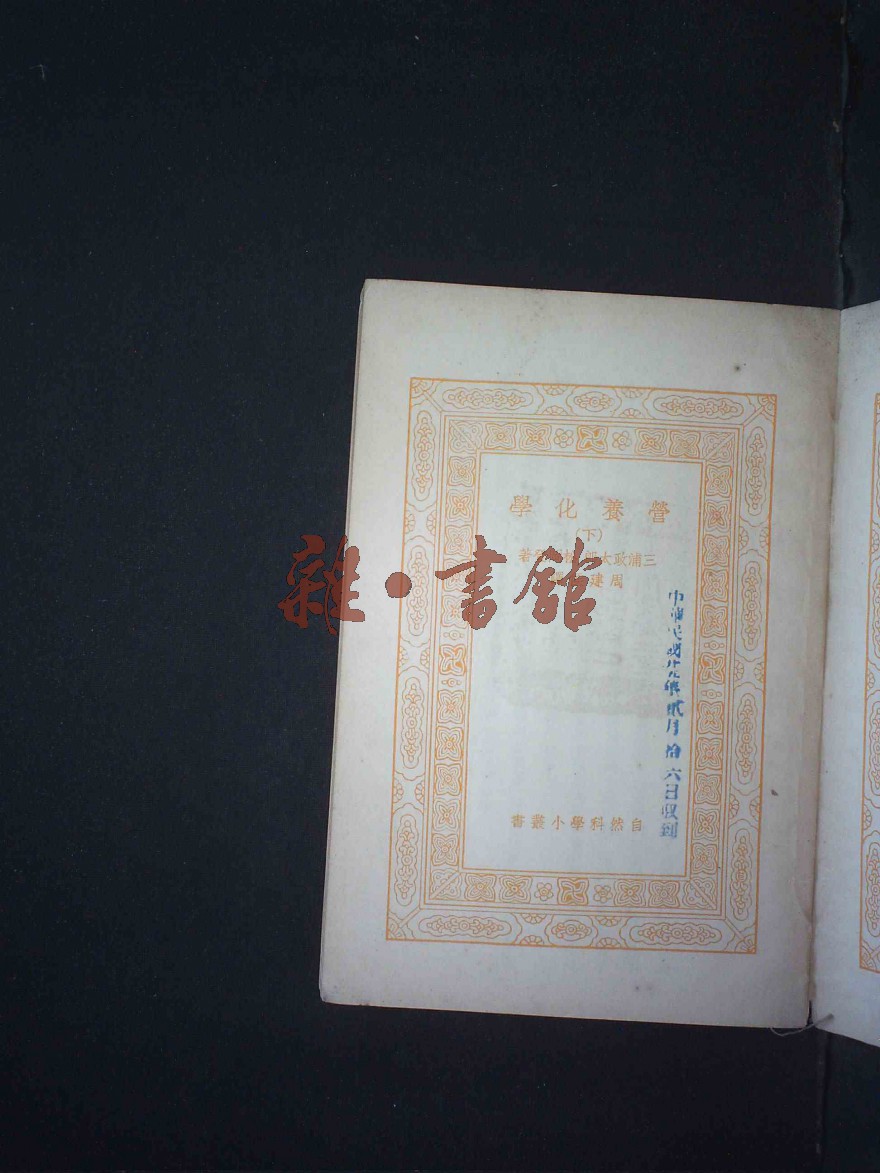 營養化學
(下)
三浦政太郎 著
周建
中華民國廿九年貳月拾六日收到
自然科學小叢書
雜·書館